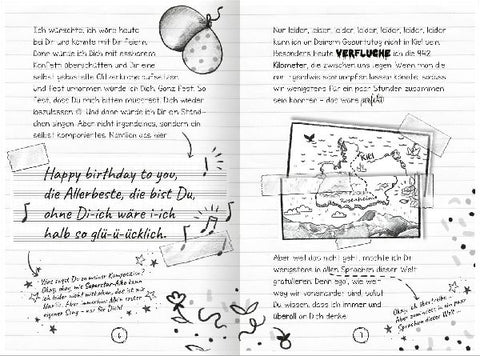 Ich wünschte, ich wäre heute
bei Dir und könnte mit Dir feiern.
Dann würde ich Dich mit essbarem
Konfetti überschütten und Dir eine
selbst gebastelte Glitzerkrone aufsetzen.
Und fest umarmen würde ich Dich. Ganz fest. So
fest, dass Du mich bitten müsstest, Dich wieder
loszulassen. Und dann würde ich Dir ein Ständ-
chen singen. Aber nicht irgendeines, sondern ein
selbst komponiertes. Nämlich das hier:
Happy birthday to you,
die Allerbeste, die bist Du,
ohne Di-ich wäre i-ich
halb so glü-ü-ücklich.
Was sagst Du zu meiner Komposition?
Okay, okay, wie Superstar-Aike kann
ich leider nicht mithalten, das ist mir
klar. Aber immerhin: Mein erster
eigener Song – nur für Dich!
6
Nur leider, leider, leider, leider, leider, leider
kann ich an Deinem Geburtstag nicht in Kiel sein.
Besonders heute VERFLUCHE ich die 942
Kilometer, die zwischen uns liegen. Wenn man die
nur irgendwie schrumpfen lassen könnte, sodass
wir wenigstens für ein paar Stunden zusammen
sein könnten – das wäre perfekt!
KIEL
Rosenheim
Aber weil das nicht geht, möchte ich Dir
wenigstens in allen Sprachen dieser Welt
gratulieren. Denn egal, wie weit
weg wir voneinander sind, sollst
Du wissen, dass ich immer und
überall an Dich denke.
Okay, ich übertreibe.
Aber zumindest in ein paar
Sprachen dieser Welt ...
7